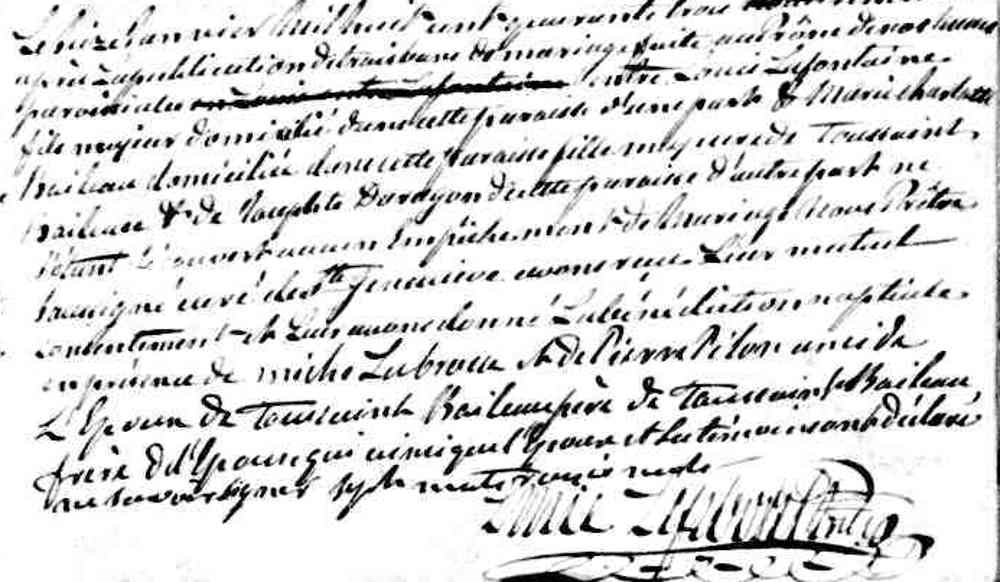 Le seize Janvier Mil huit cent quarante trois
après la publication de trois bans de mariage faite au Prône de nos Messes
paroissiales entre Louis Lafontaine
fils majeur domicilié dans cette paroisse d'une part & Marie charlotte
Baileau domiciliée dans cette paroisse fille majeure de Toussaint
Baileau & de Josephte Daragon de cette paroisse d'autre part ne
s'étant découvert aucun Empêchement de Mariage Nous Prêtre
soussigné curé de Ste Geneviève avons reçu Leur mutuel
consentement et Leur avons donné La bénédiction nuptiale
en présence de Labrosse & de Pierre Pilon amis de
L'Epoux de Toussaint Baileau père de Toussaint Baileau
frère de l'Epouse qui ainsi que l'Epoux et Les témoins ont déclaré
ne savoir signer sept mots rayés nuls
Louis Lefebvre Ptre